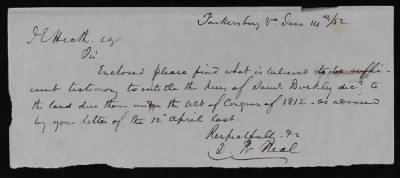 Parkersburg Va June 14th/52
J E Heath. Esq
Sir.
Enclosed please find what is believed to be suffi-
cient testimony to entitle the heirs of Saml. Buckley decd. to
the land due them under the Act of Congress of 1812 - as advised
by your letter of the 12th April last.
Respectfully &c
D. R. Neal